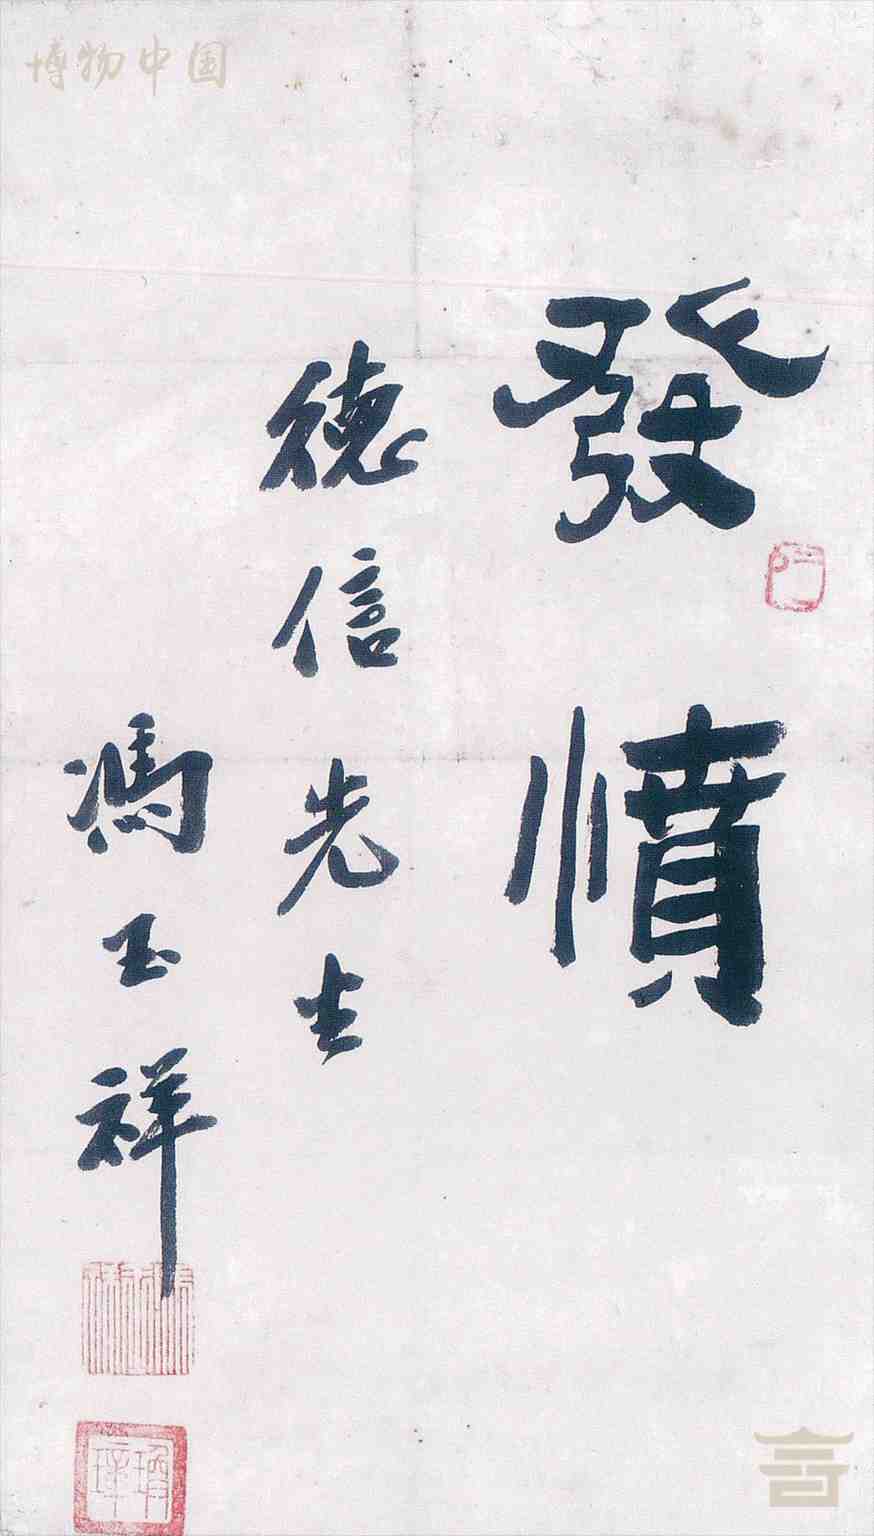 發憤
德信先生
馮玉祥
博物中国